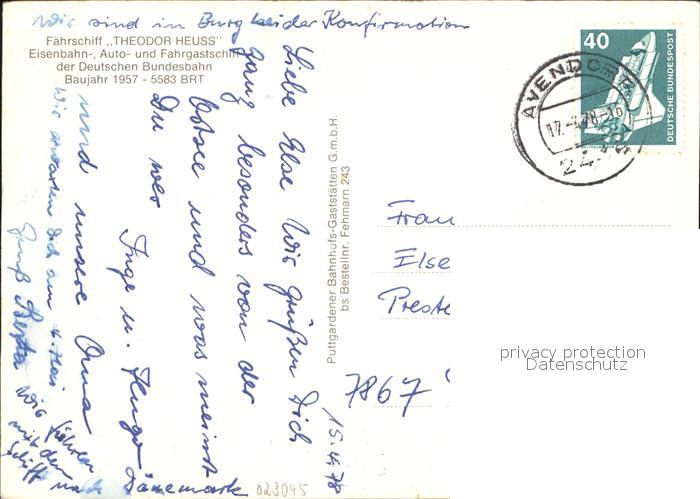 Wir sind in Burg bei der Konfirmation
Fährschiff „THEODOR HEUSS"
Eisenbahn-, Auto- und Fahrgastschiff
der Deutschen Bundesbahn
Baujahr 1957 - 5583 BRT
15.4.78
Liebe Else Wir grüßen Dich
ganz besonders von der
Ostsee und was meinst
Du wer
Inge u. Hugo
und unsere Oma
Wir erwarten Dich am 4. Mai
Gruß Berta
Wir fahren
mit dem
Schiff nach Dänemark
Puttgardener Bahnhofs-Gaststätten G.m.b.H.
bs Bestellnr. Fehmarn 243
40
DEUTSCHE BUNDESPOST
AVENDORF
17.-4.78-16
Frau
Else
Preste
7867
privacy protection
Datenschutz
023045